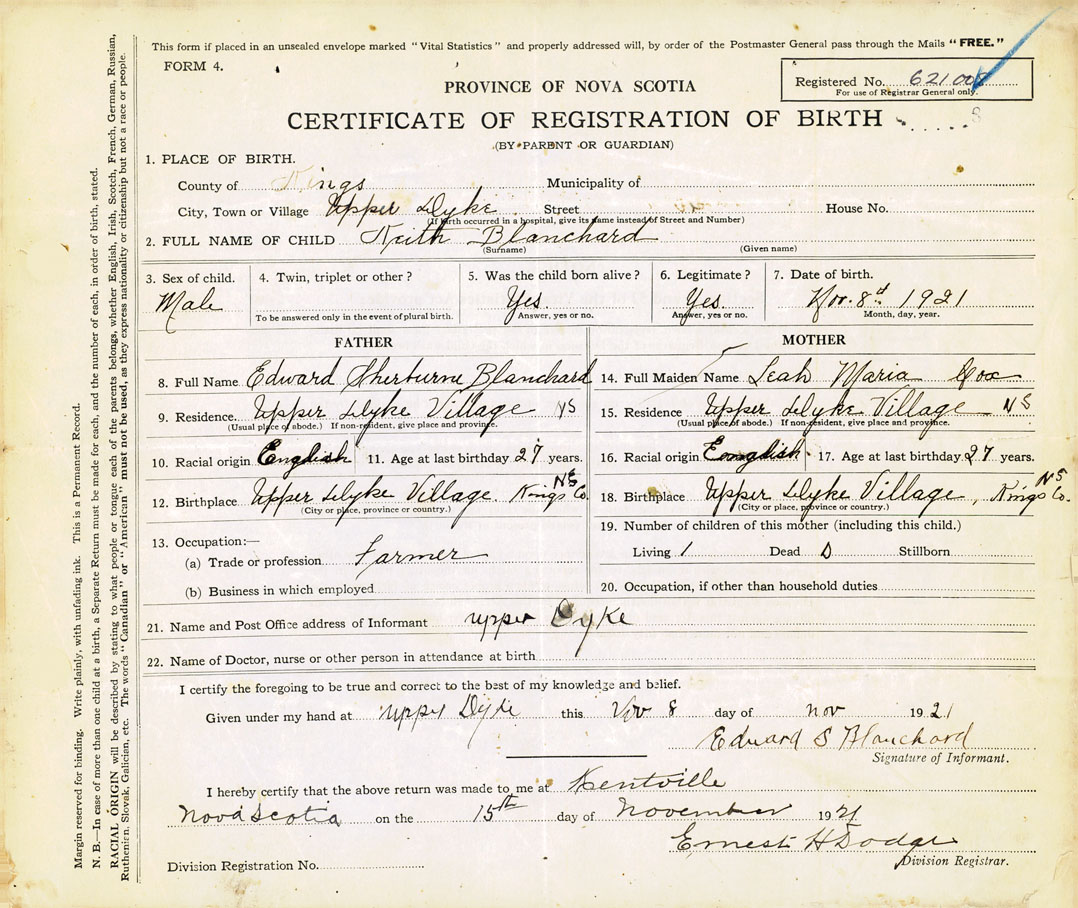 This form if placed in an unsealed envelope marked "Vital Statistics" and properly addressed will, by order of the Postmaster General pass through the Mails "FREE."
FORM 4.
Registered No. 621008
For use of Registrar General only.
PROVINCE OF NOVA SCOTIA
CERTIFICATE OF REGISTRATION OF BIRTH
(BY PARENT OR GUARDIAN)
8
1. PLACE OF BIRTH.
County of Kings Municipality of
City, Town or Village Upper Dyke Street House No.
(If birth occurred in a hospital, give its name instead of Street and Number)
2. FULL NAME OF CHILD Keith Blanchard
(Surname) (Given name)
3. Sex of child. 4. Twin, triplet or other? 5. Was the child born alive? 6. Legitimate? 7. Date of birth.
Male Yes Yes Nov. 8th 1921
To be answered only in the event of plural birth. Answer, yes or no. Answer, yes or no. Month, day, year.
FATHER
8. Full Name Edward Sherburne Blanchard
9. Residence. Upper Dyke Village NS
(Usual place of abode.) If non-resident, give place and province.
10. Racial origin English 11. Age at last birthday 27 years.
12. Birthplace Upper Dyke Village. Kings Co. NS
(City or place, province or country.)
13. Occupation:—
(a) Trade or profession Farmer
(b) Business in which employed
MOTHER
14. Full Maiden Name Leah Maria Cox
15. Residence Upper Dyke Village NS
(Usual place of abode.) If non-resident, give place and province.
16. Racial origin English. 17. Age at last birthday 27 years.
18. Birthplace Upper Dyke Village, Kings Co. NS
(City or place, province or country.)
19. Number of children of this mother (including this child.)
Living 1 Dead 0 Stillborn
20. Occupation, if other than household duties
21. Name and Post Office address of Informant upper Dyke
22. Name of Doctor, nurse or other person in attendance at birth
I certify the foregoing to be true and correct to the best of my knowledge and belief.
Given under my hand at upper Dyke this Nov 8 day of nov 1921
Edward S Blanchard
Signature of Informant.
I hereby certify that the above return was made to me at Kentville
Nova Scotia on the 15th day of November 1921
Ernest H Dodge
Division Registrar.
Division Registration No.
Margin reserved for binding. Write plainly, with unfading ink. This is a Permanent Record.
N. B.—In case of more than one child at a birth, a Separate Return must be made for each, and the number of each, in order of birth, stated.
RACIAL ORIGIN will be described by stating to what people or tongue each of the parents belongs, whether English, Irish, Scotch, French, German, Russian,
Ruthenian, Slovak, Galician, etc. The words "Canadian" or "American" must not be used, as they express nationality or citizenship but not a race or people.